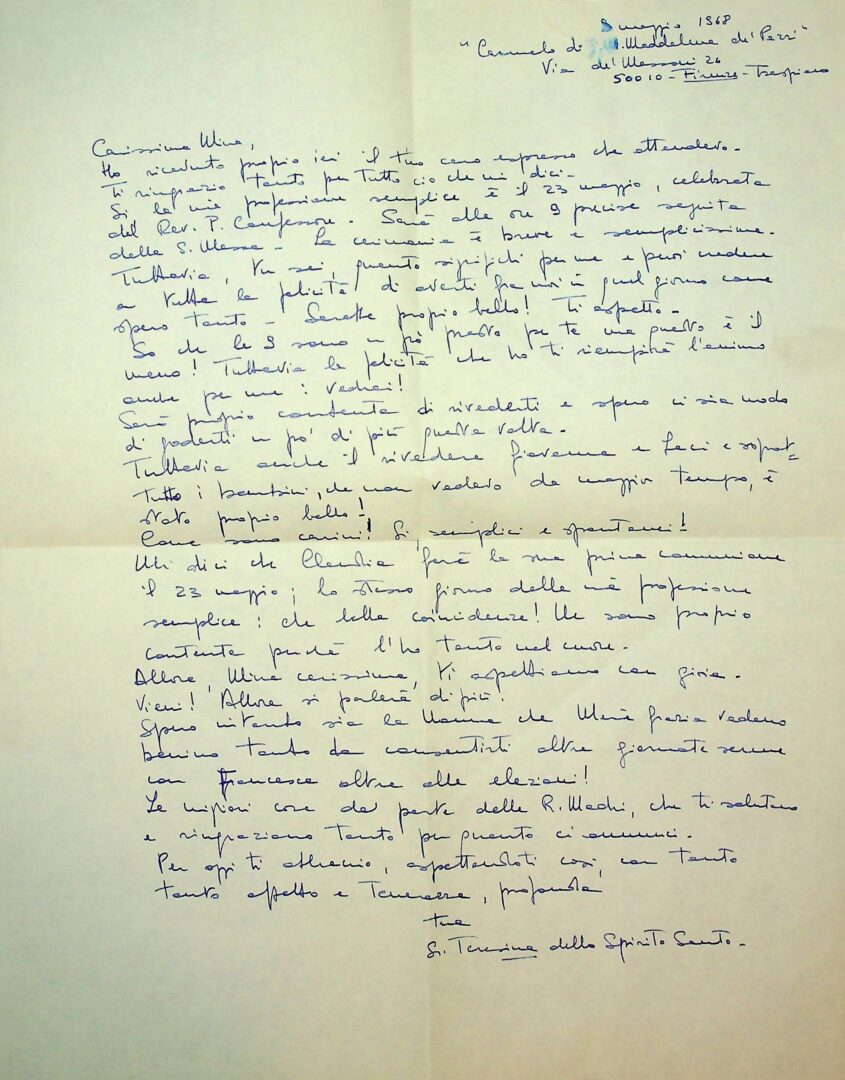 8 maggio 1968
"Carmelo di S. M. Maddalena de' Pazzi"
Via de' Massoni 26
50010 - Firenze - Trespiano
Carissima Mina,
Ho ricevuto proprio ieri il tuo caro espresso che attendevo.
Ti ringrazio tanto per tutto ciò che mi dici.
Si la mia professione semplice è il 23 maggio, celebrata
dal Rev. P. Confessore. Sarà alle ore 9 precise seguita
dalla S. Messa. La cerimonia è breve e semplicissima.
Tuttavia, tu sai, quanto significhi per me e puoi vedere
tutta la felicità di averti fra noi in quel giorno come
spero tanto - Sarebbe proprio bello! Ti aspetto.
So che le 9 sono un pò presto per te ma questo è il
meno! Tuttavia la felicità che ho ti riempirà l'animo
anche per me: vedrai!
Sarò proprio contenta di rivederti e spero ci sia modo
di goderti un pò di più questa volta.
Tuttavia anche il rivedere Giovanna e e soprat=
tutto i bambini, che non vedevo da maggior tempo, è
stato proprio bello!
Come sono carini! Si, semplici e spontanei!
Mi dici che Claudia farà la sua prima comunione
il 23 maggio; lo stesso giorno della mia professione
semplice: che bella coincidenza! Ne sono proprio
contenta perché l'ho tanto nel cuore.
Allora, Mina carissima, ti aspettiamo con gioia.
Vieni! Allora si parlerà di più!
Spero intanto sia la Nonna che Maria Grazia vadano
benino tanto da consentirti altre giornate serene
con Francesca oltre alle elezioni!
Le migliori cose da parte delle R. Madri, che ti salutano
e ringraziano tanto per quanto ci annunci.
Per oggi ti abbraccio, aspettandoti così, con tanto
tanto affetto e tenerezza, profonda
tua
S. Teresina dello Spirito Santo.